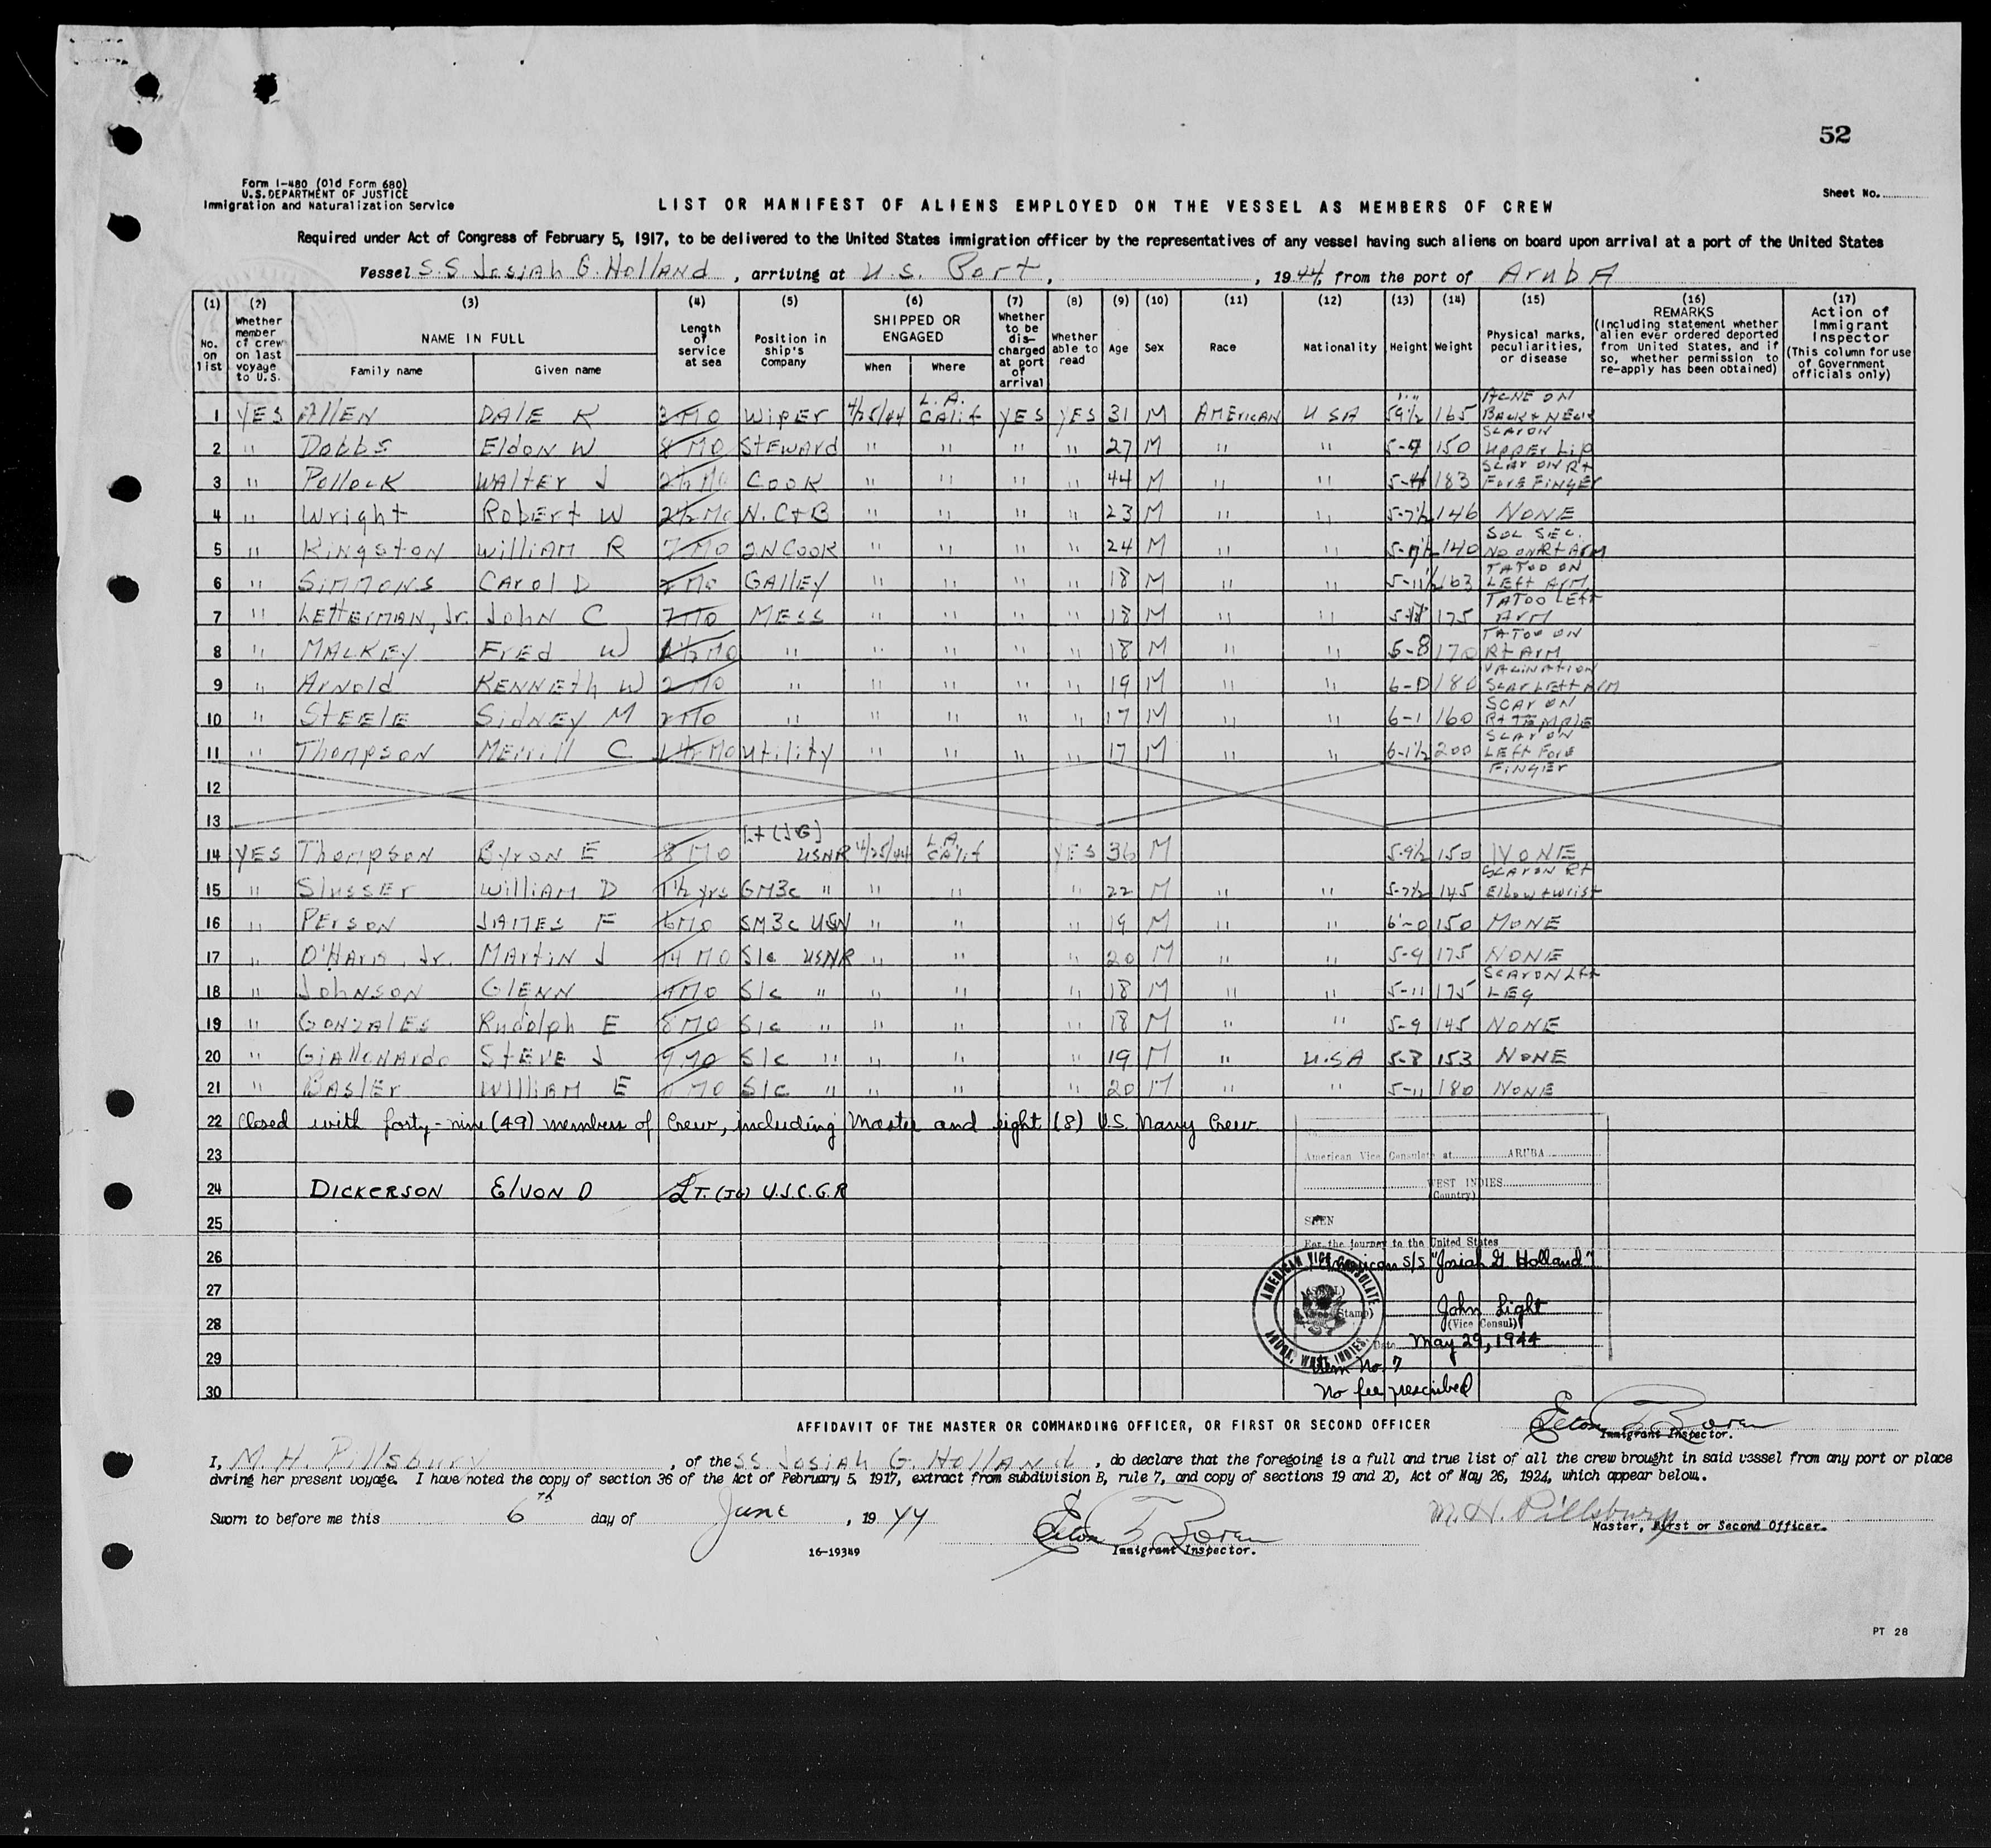 52
Form I-480 (Old Form 680)
U.S. DEPARTMENT OF JUSTICE
Immigration and Naturalization Service
Sheet No.
LIST OR MANIFEST OF ALIENS EMPLOYED ON THE VESSEL AS MEMBERS OF CREW
Required under Act of Congress of February 5, 1917, to be delivered to the United States immigration officer by the representatives of any vessel having such aliens on board upon arrival at a port of the United States
Vessel S.S. Josiah G. Holland, arriving at U.S. Port, , 1944, from the port of Aruba
(1) (2) (3) (4) (5) (6) (7) (8) (9) (10) (11) (12) (13) (14) (15) (16) (17)
No. on list
Whether member of crew on last voyage to U.S.
NAME IN FULL
Family name Given name
Length of service at sea
Position in ship's Company
SHIPPED OR ENGAGED
When Where
Whether to be discharged at port of arrival
Whether able to read
Age Sex Race Nationality Height Weight
Physical marks, peculiarities, or disease
REMARKS (Including statement whether alien ever ordered deported from United States, and if so, whether permission to re-apply has been obtained)
Action of Immigrant Inspector (This column for use of Government officials only)
1 YES Allen DALE K 3 MO Wiper 4/25/44 L.A. Calif YES YES 31 M AMERICAN USA 5 9½ 165 ACNE ON BACK & NECK
2 " Dobbs Eldon W 8 MO Steward " " " " 27 M " " 150 SCAR ON UPPER Lip
3 " Pollock Walter J 2½ Mo COOK " " " " 44 M " " 183 SCAR ON Rt FOREFINGER
4 " Wright Robert W 2½ Mo N. C+B " " " " 23 M " " 5-7½ 146 NONE
5 " Kingston William R 7 MO 2N COOK " " " " 24 M " " 140 SOC SEC. NO ON Rt ARM
6 " Simmons Carol D 2 Mo GAllEY " " " " 18 M " " 5-11½ 163 TATOO ON LEFT ARM
7 " Letterman, Jr. John C 7 MO MESS " " " " 18 M " " 175 TATOO LEFT ARM
8 " MALKEY Fred W 1½ MO " " " " " 18 M " " 5-8 170 TATOO ON Rt ARM
9 " Arnold KENNETH W 2 MO " " " " " 19 M " " 6-0 180 VACINATION SCAR LEFT ARM
10 " STEELE Sidney M 2 Mo " " " " " 17 M " " 6-1 160 SCAR ON Rt TEMPLE
11 " Thompson Merrill C 1½ MO Utility " " " " 17 M " " 6-1½ 200 SCAR ON LEFT FORE FINGER
12
13
14 YES Thompson Byron E 8 MO Lt (JG) USNR 4/25/44 L.A. Calif YES 36 M 5-9½ 150 NONE
15 " Slusser William D 1½ yrs GM3c " " " " 22 M " " 5-7½ 145 SCAR ON Rt Elbow + wrist
16 " PERSON JAMES F 6 MO SM3c USN " " " 19 M " " 6'-0 150 NONE
17 " O'Hara, Jr. Martin J 14 MO S1c USNR " " " 20 M " " 5-9 175 NONE
18 " Johnson GLENN 9 MO S1c " " " " 18 M " " 5-11 175 SCAR ON Lft LEG
19 " GONZALES Rudolph E 8 MO S1c " " " " 18 M " " 5-9 145 NONE
20 " Giallonardo STEVE J 9 MO S1c " " " " 19 M " U.S.A 5-8 153 NONE
21 " BASLER William E MO S1c " " " " 20 M " " 5-11 180 NONE
22 Closed with forty-nine (49) members of Crew, including Master and eight (8) U.S. Navy Crew.
23
24 DICKERSON ElVON D LT. (JG) U.S.C.G.R
25
26
27
28
29
30
American Vice Consulate at ARUBA
WEST INDIES
(Country)
SEEN
For the journey to the United States
American S/S "Josiah G. Holland"
John Light
(Vice Consul)
Date May 29, 1944
AMERICAN VICE CONSULATE
ARUBA, WEST INDIES.
(Stamp)
Item No. 7
No fee prescribed
AFFIDAVIT OF THE MASTER OR COMMANDING OFFICER, OR FIRST OR SECOND OFFICER
Immigrant Inspector.
I, M. H. Pillsbury, of the SS Josiah G. Holland, do declare that the foregoing is a full and true list of all the crew brought in said vessel from any port or place
during her present voyage. I have noted the copy of section 36 of the Act of February 5, 1917, extract from subdivision B, rule 7, and copy of sections 19 and 20, Act of May 26, 1924, which appear below.
Sworn to before me this 6th day of June, 1944
M. H. Pillsbury
Master, First or Second Officer.
16-19349
Immigrant Inspector.
PT 28